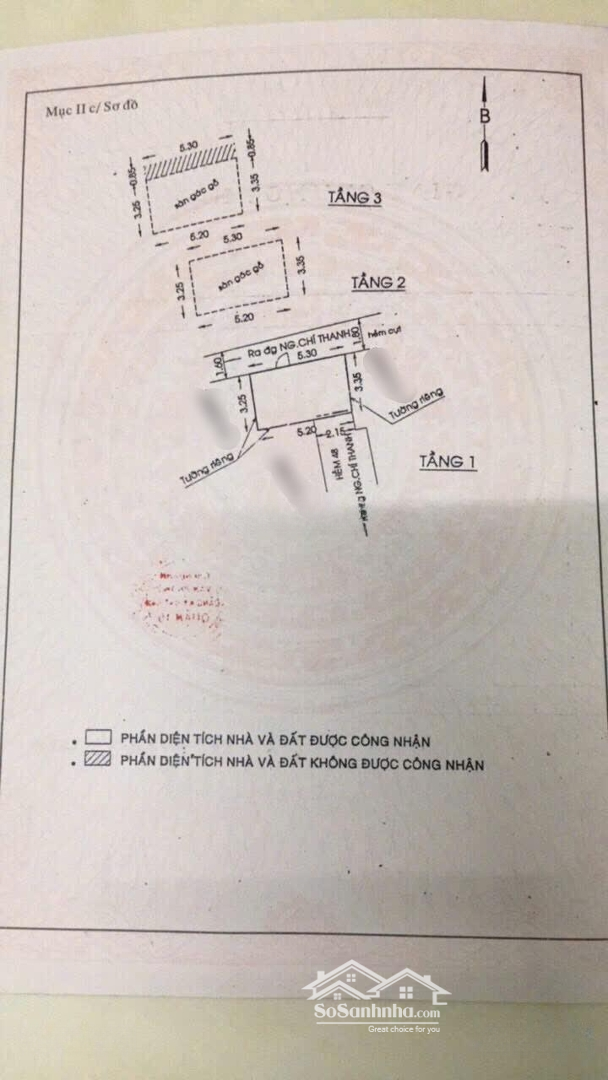 Mục II c/ Sơ đồ
B
5.30
0.85
0.85
3.25
3.35
sàn gác gỗ
5.20
TẦNG 3
5.30
3.25
3.35
sàn gác gỗ
5.20
TẦNG 2
Ra đg NG.CHÍ THANH
hẻm cụt
1.60
1.80
5.30
3.25
3.35
Tường riêng
Tường riêng
5.20
2.15
HẺM 48
NG.CHÍ THANH
TẦNG 1
PHẦN DIỆN TÍCH NHÀ VÀ ĐẤT ĐƯỢC CÔNG NHẬN
PHẦN DIỆN TÍCH NHÀ VÀ ĐẤT KHÔNG ĐƯỢC CÔNG NHẬN
SoSanhnha.com
Great choice for you